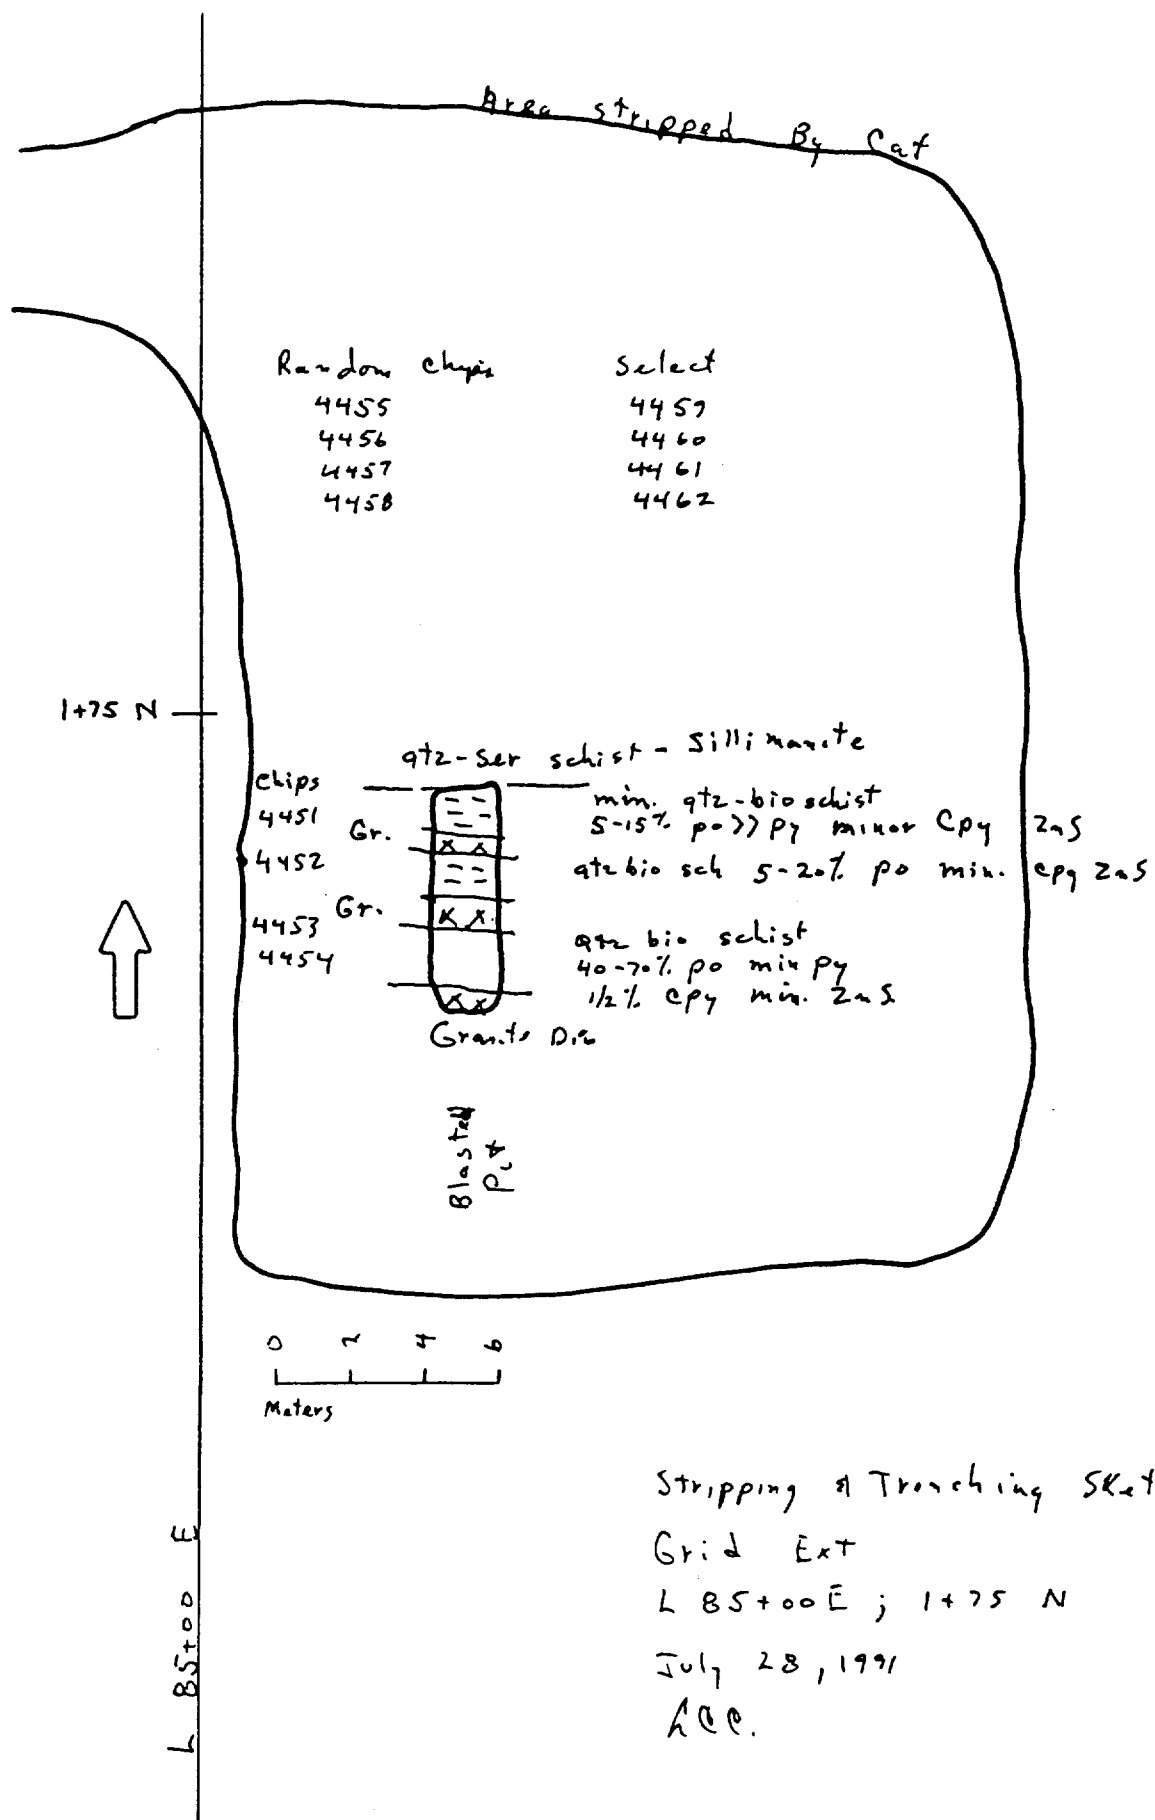 Area stripped By Cat
Random Chips
4455
4456
4457
4458
Select
4459
4460
4461
4462
1+75 N
qtz-ser schist - Sillimanite
Chips
4451
4452
4453
4454
Gr.
Gr.
min. qtz-bio schist
5-15% po>>py minor Cpy ZnS
qtz bio sch 5-20% po min. cpy ZnS
qtz bio schist
40-70% po min py
1/2% cpy min. ZnS
Granite
Blasted
Pit
0 2 4 6
Meters
L 85+00 E
Stripping & Trenching Sket
Grid Ext
L 85+00E ; 1+75 N
July 28, 1991